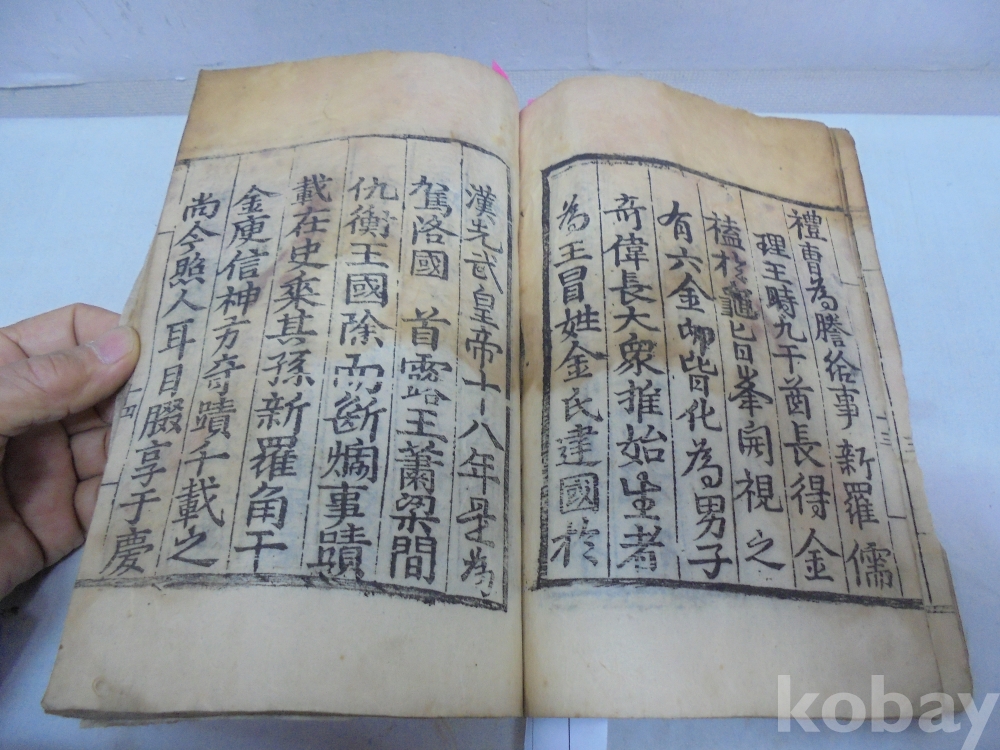 禮曹為謄給事新羅儒
理王時九干酋長得金
榼於龜旨峯開視之
有六金卵皆化為男子
奇偉長大衆推始生者
為王冒姓金氏建國於
漢光武皇帝十八年是為
駕洛國 首露王蕭梁間
仇衡王國除而斷爛事蹟
載在史乘其孫新羅角干
金庾信神方奇蹟千載之
尚今照人耳目腏享于慶
十三
十四
kobay